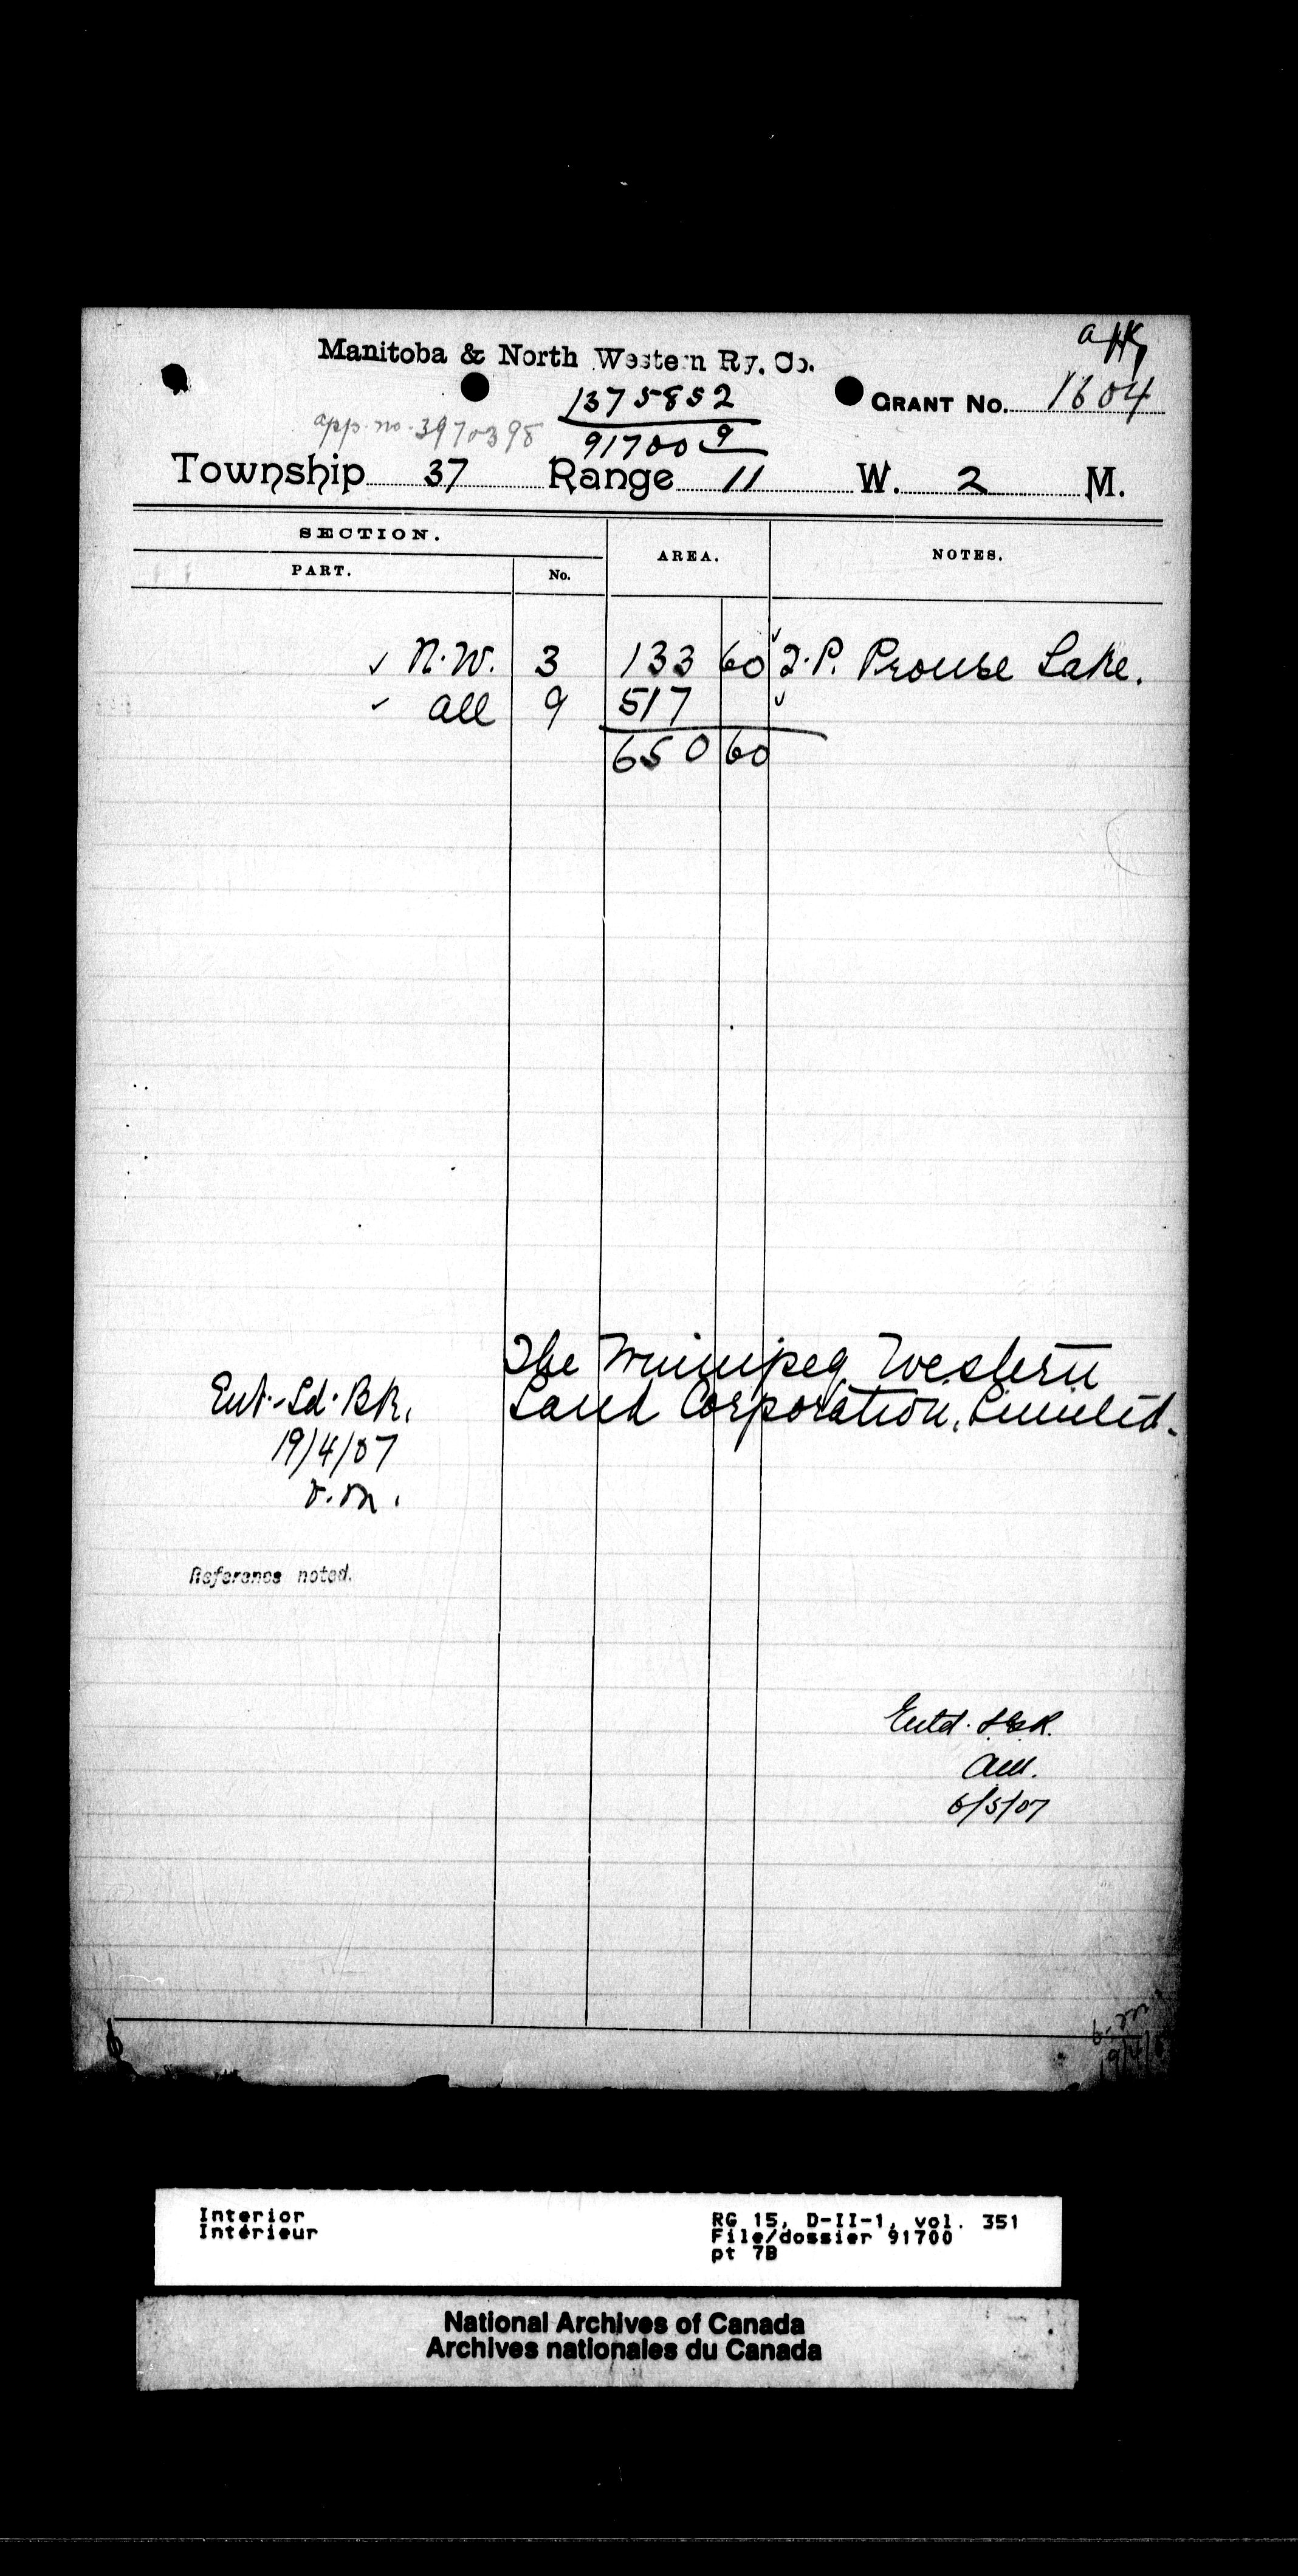 Manitoba & North Western Ry. Co.
1375852
GRANT No. 1604
app. no. 3970398
91700 9
Township 37 Range 11 W. 2 M.
SECTION.
AREA.
NOTES.
PART.
No.
✓ N.W. 3 133 60 ✓ F.P. Prouse Lake.
✓ all 9 517 ✓
650 60
The Winnipeg Western
Land Corporation, Limited.
Ent. Ld. Bk.
19/4/07
Reference noted.
Entd.
6/5/07
Interior
Intérieur
RG 15, D-II-1, vol. 351
File/dossier 91700
pt 7B
National Archives of Canada
Archives nationales du Canada